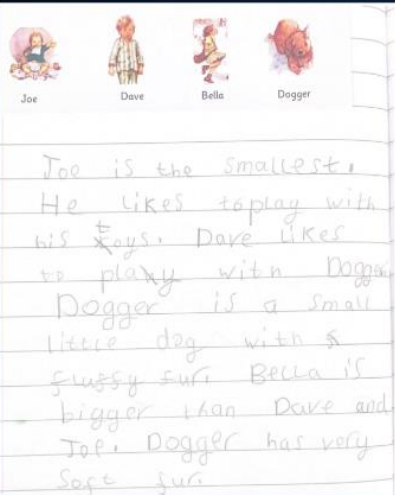 Joe Dave Bella Dogger
Joe is the smallest.
He likes to play with
his toys. Dave likes
to play with Dogger
Dogger is a small
little dog with
fluffy fur. Bella is
bigger than Dave and
Joe. Dogger has very
soft fur.